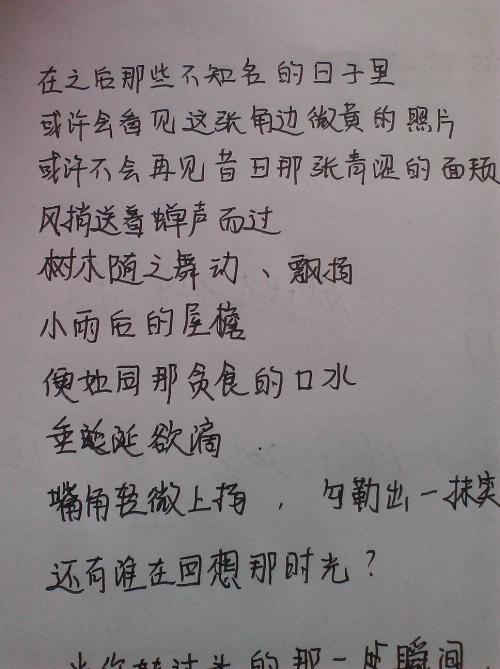 在之后那些不知名的日子里
或许会看见这张角边微黄的照片
或许不会再见昔日那张青涩的面颊
风捎送着蝉声而过
树木随之舞动、飘扬
小雨后的屋檐
便如同那贪食的口水
垂涎欲滴
嘴角轻微上扬，勾勒出一抹笑
还有谁在回想那时光？
当你转过头的那一处瞬间